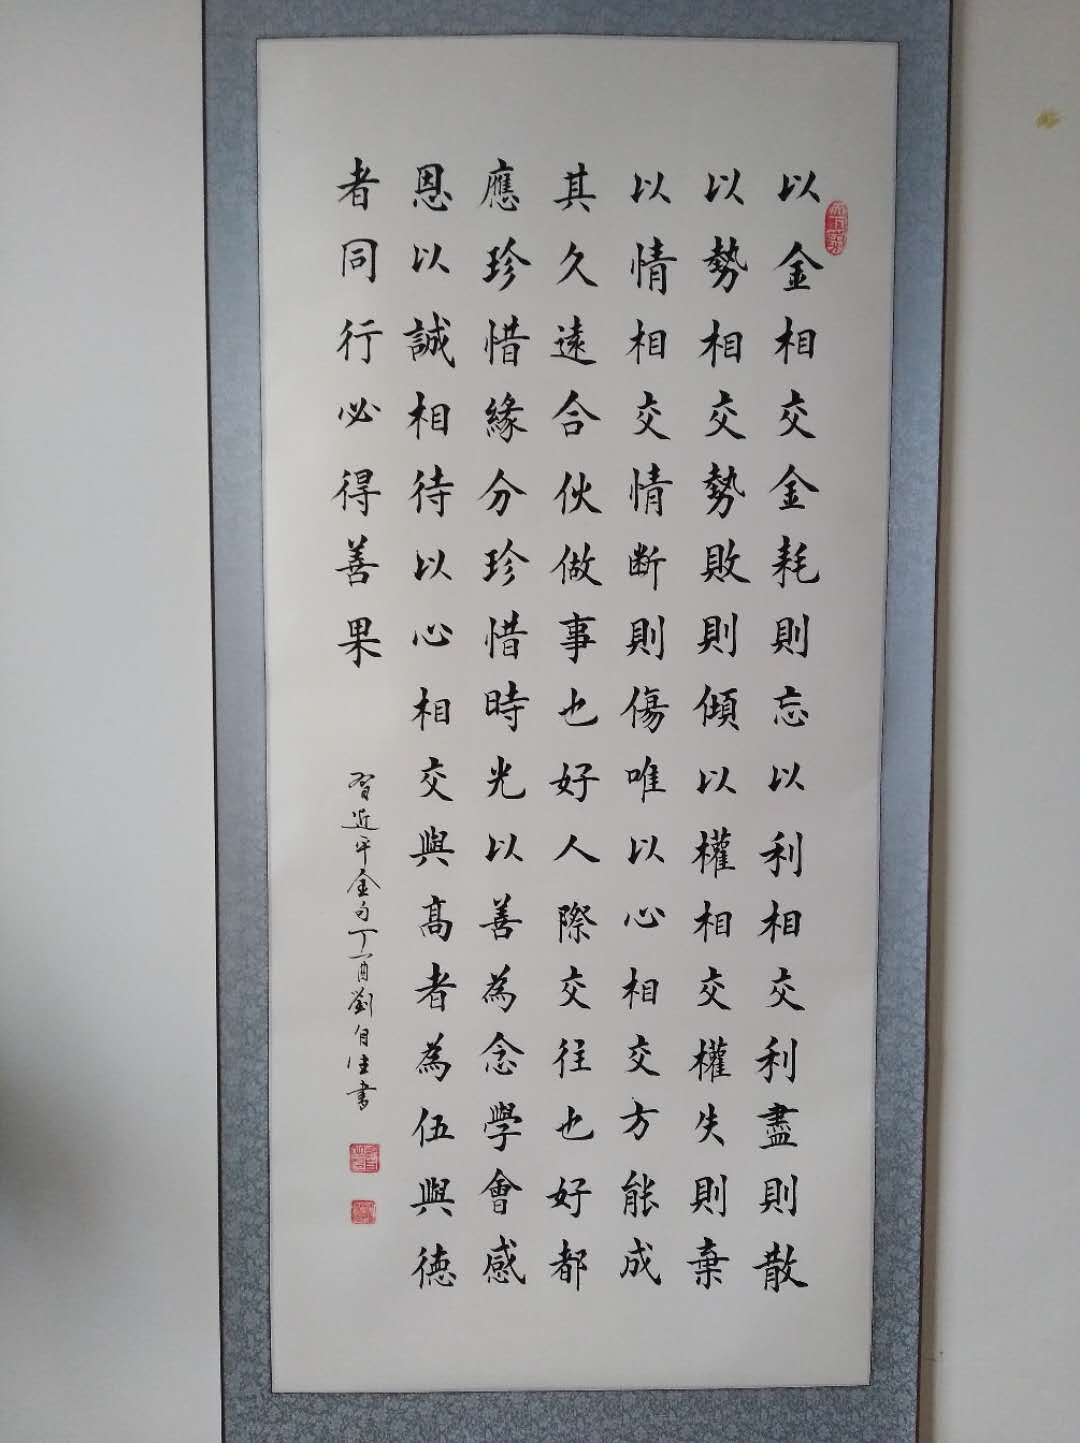 以金相交金耗則忘以利相交利盡則散
以勢相交勢敗則傾以權相交權失則棄
以情相交情断則傷唯以心相交方能成
其久遠合伙做事也好人際交往也好都
應珍惜緣分珍惜時光以善為念學會感
恩以誠相待以心相交與高者為伍與德
者同行必得善果
習近平金句丁酉劉自注書